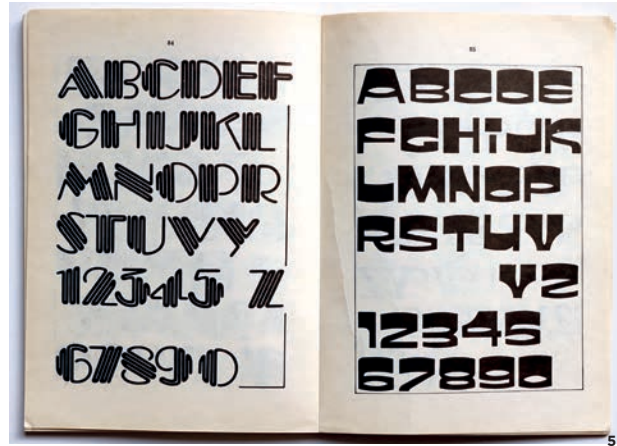 84
ABCDEF
GHIJKL
MNOPR
STUVY
12345 Z
67890
85
ABCDE
FGHiJK
LMNOP
RSTUV
YZ
12345
67890
5